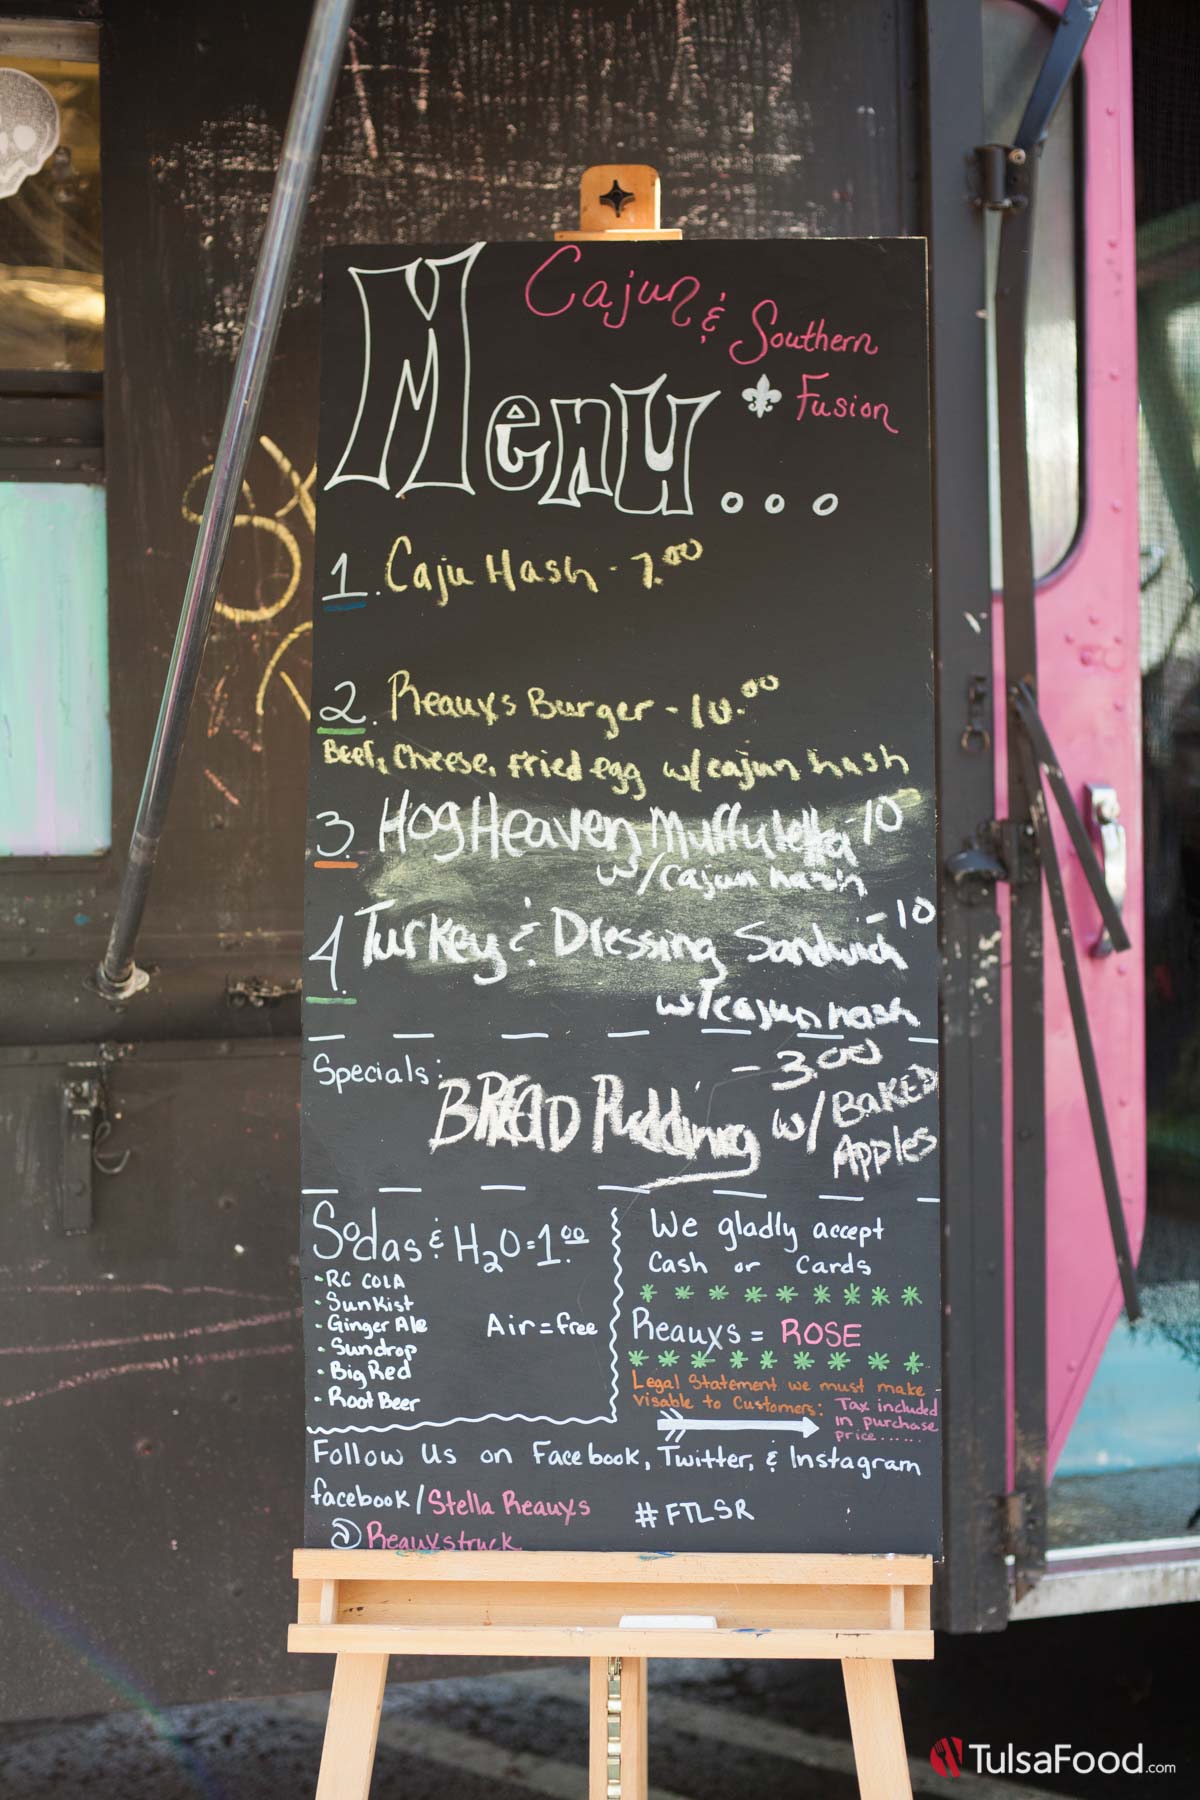 Menu...
Cajun & Southern
⚜ Fusion
1. Caju Hash - 7.00
2. Reauxs Burger - 10.00
Beef, Cheese, Fried egg w/cajun hash
3. Hog Heaven Muffuletta - 10
w/cajun hash
4. Turkey & Dressing Sandwich - 10
w/cajun hash
Specials:
BREAD Pudding - 3.00
w/ BAKED
Apples
Sodas & H2O = 1.00
• RC COLA
• Sunkist
• Ginger Ale
• Sundrop
• Big Red
• Root Beer
Air = free
We gladly accept
Cash or Cards
Reauxs = ROSE
Legal Statement we must make
visable to Customers: Tax included
in purchase
price......
Follow Us on Facebook, Twitter, & Instagram
facebook/Stella Reauxs
#FTLSR
@Reauxstruck
TulsaFood.com